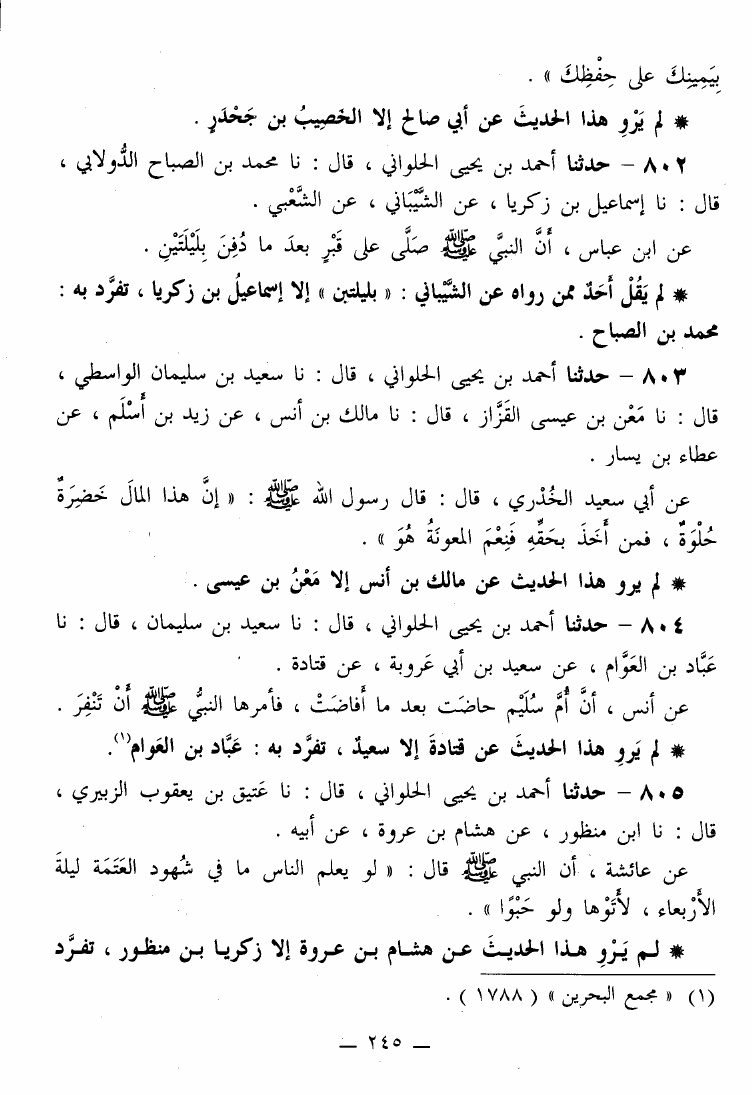 بِيَمِينِكَ على حِفْظِكَ » .
* لم يَرْوِ هذا الحديثَ عن أبي صالح إلا الخَصِيبُ بن جَحْدَرٍ .
٨٠٢ – حدثنا أحمد بن يحيى الحلواني ، قال : نا محمد بن الصباح الدُّولابي ،
قال : نا إسماعيل بن زكريا ، عن الشَّيْبَاني ، عن الشَّعْبي .
عن ابن عباس ، أَنَّ النبيَّ ﷺ صَلَّى على قَبْرٍ بعدَ ما دُفِنَ بِلَيْلَتَيْنِ .
* لم يَقُلْ أَحَدٌ ممن رواه عن الشَّيْباني : « بليلتين » إلا إسماعيلُ بن زكريا ، تفرَّد به :
محمد بن الصباح .
٨٠٣ – حدثنا أحمد بن يحيى الحلواني ، قال : نا سعيد بن سليمان الواسطي ،
قال : نا مَعْن بن عيسى القَزَّاز ، قال : نا مالك بن أنس ، عن زيد بن أَسْلَم ، عن
عطاء بن يسار .
عن أبي سعيد الخُدْري ، قال : قال رسول الله ﷺ : « إنَّ هذا المالَ خَضِرَةٌ
حُلْوَةٌ ، فمن أَخَذَ بحَقِّهِ فَنِعْمَ المعونَةُ هُوَ » .
* لم يرو هذا الحديث عن مالك بن أنس إلا مَعْنُ بن عيسى .
٨٠٤ – حدثنا أحمد بن يحيى الحلواني ، قال : نا سعيد بن سليمان ، قال : نا
عَبَّاد بن العَوَّام ، عن سعيد بن أبي عَروبة ، عن قتادة .
عن أنس ، أنَّ أُمَّ سُلَيْم حاضَت بعد ما أَفاضَتْ ، فأمرها النبيُّ ﷺ أَنْ تَنْفِرَ .
* لم يَروِ هذا الحديثَ عن قتادةَ إلا سعيدٌ ، تفرَّد به : عَبَّاد بن العَوام(١).
٨٠٥ – حدثنا أحمد بن يحيى الحلواني ، قال : نا عَتيق بن يعقوب الزبيري ،
قال : نا ابن منظور ، عن هشام بن عروة ، عن أبيه .
عن عائشة ، أن النبي ﷺ قال : « لو يعلم الناس ما في شُهود العَتَمَة ليلةَ
الأَرْبعاء ، لأَتَوْها ولو حَبْوًا » .
* لـم يَـرْوِ هـذا الحديثَ عـن هشـام بـن عـروة إلا زكريـا بـن منظـور ، تفـرَّد
(١) « مجمع البحرين » ( ١٧٨٨ ) .
– ٢٤٥ –